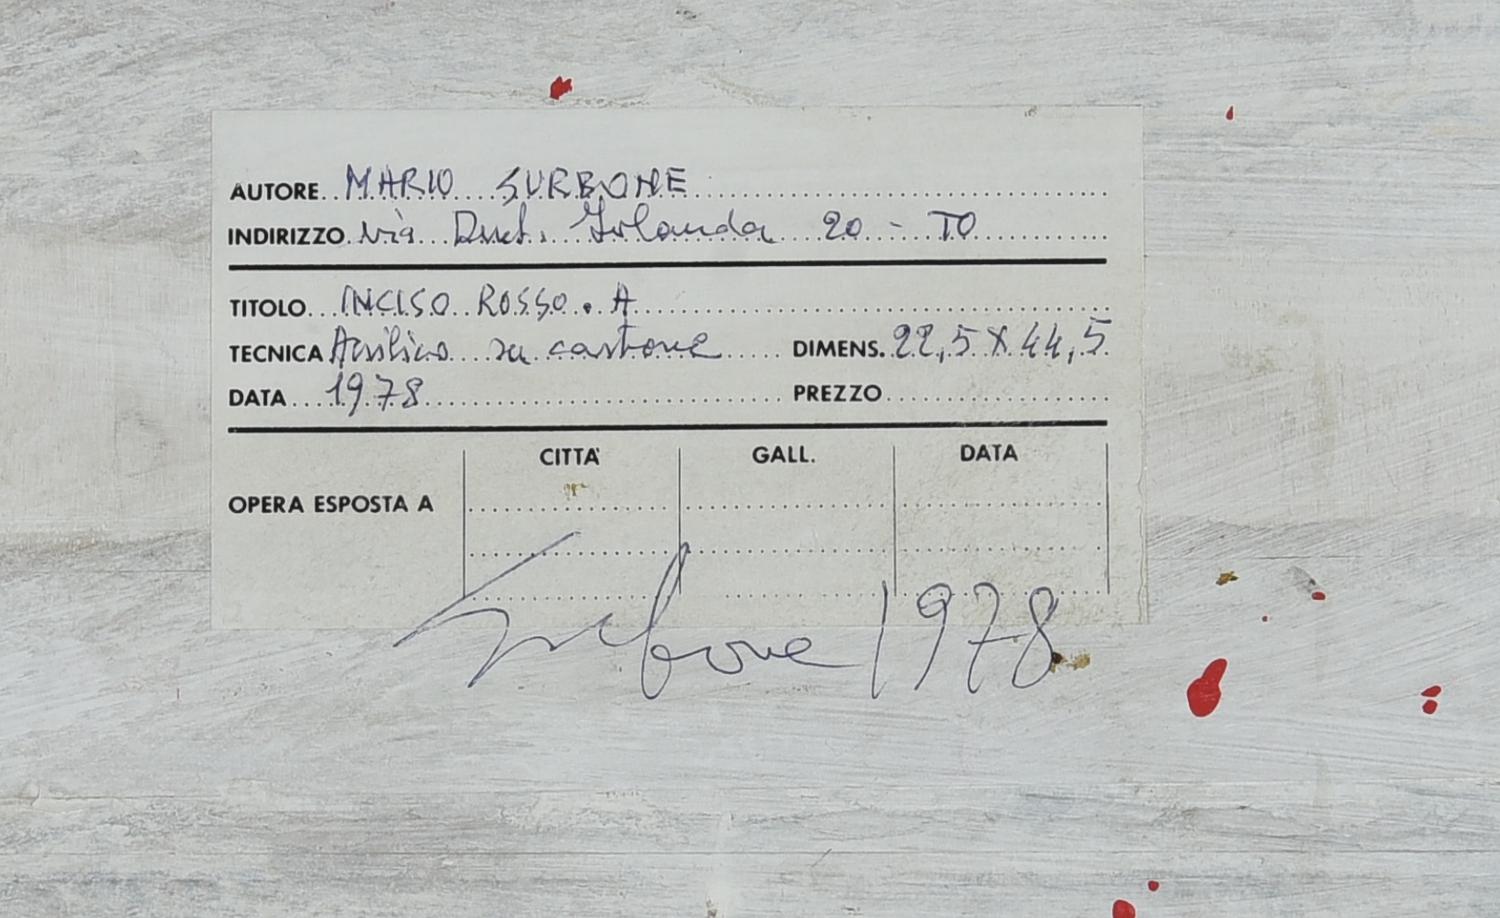 AUTORE MARIO SURBONE
INDIRIZZO via Duch. Jolanda 20 - TO
TITOLO INCISO ROSSO. A
TECNICA Acrilico su cartone DIMENS. 22,5 X 44,5
DATA 1978 PREZZO
CITTA' GALL. DATA
OPERA ESPOSTA A
Surbone 1978